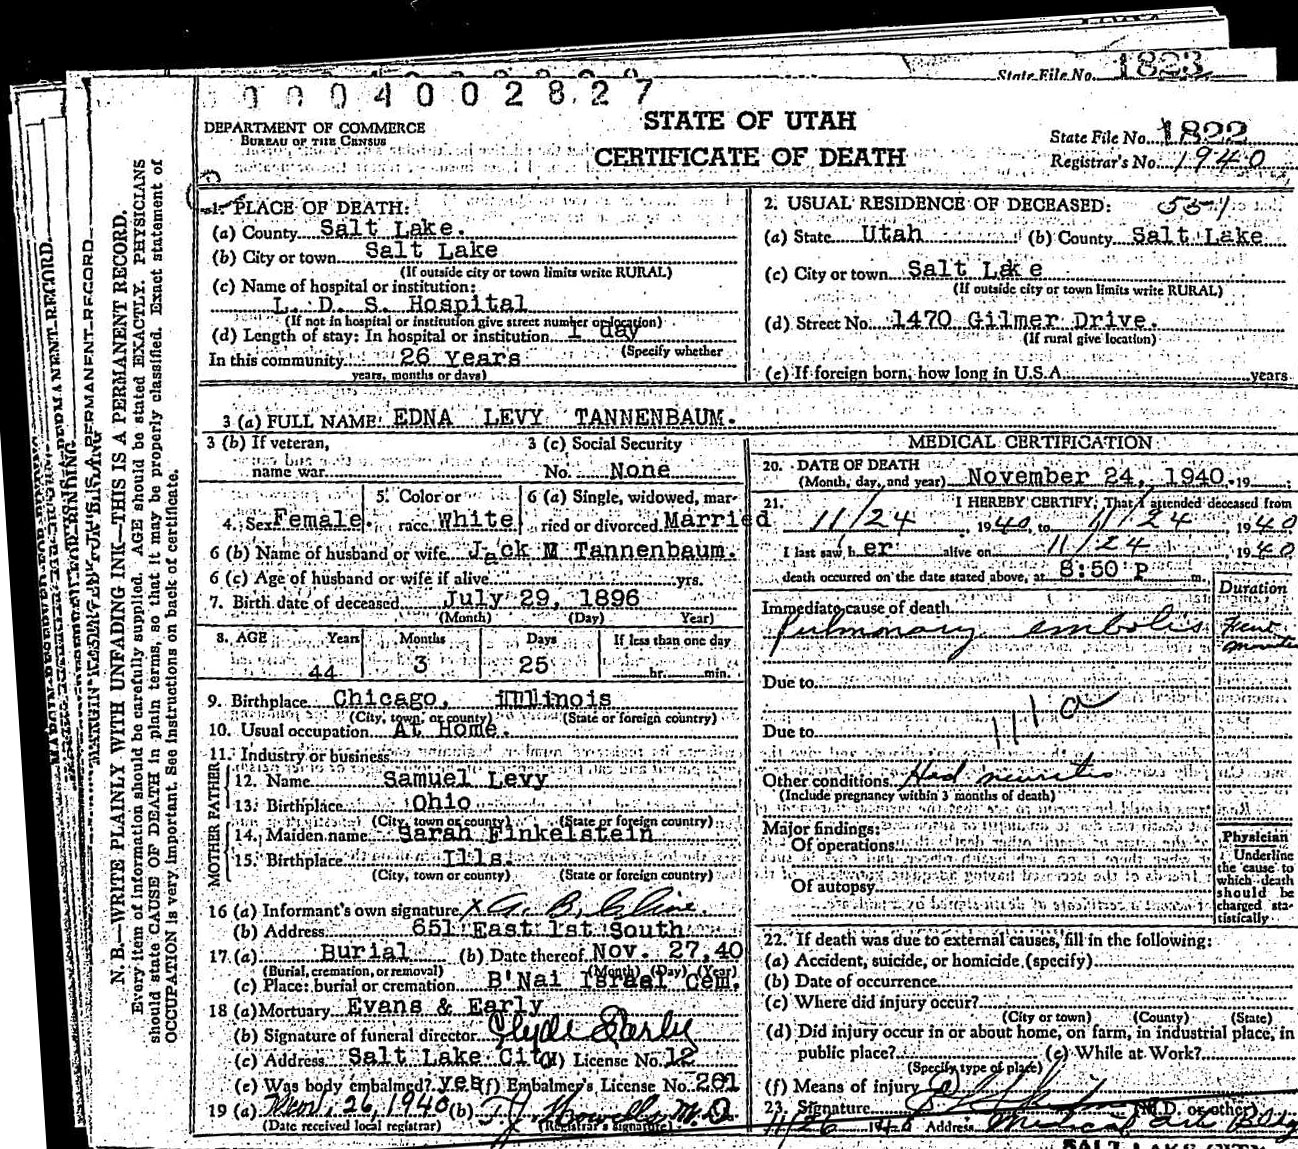 State File No. 1823
0 0 0 4 0 0 2 8 2 7
STATE OF UTAH
CERTIFICATE OF DEATH
DEPARTMENT OF COMMERCE
BUREAU OF THE CENSUS
State File No. 1822
Registrar's No. 1940
N. B.—WRITE PLAINLY WITH UNFADING INK—THIS IS A PERMANENT RECORD.
Every item of information should be carefully supplied. AGE should be stated EXACTLY. PHYSICIANS
should state CAUSE OF DEATH in plain terms, so that it may be properly classified. Exact statement of
OCCUPATION is very important. See instructions on back of certificate.
1. PLACE OF DEATH:
(a) County Salt Lake.
(b) City or town Salt Lake
(If outside city or town limits write RURAL)
(c) Name of hospital or institution:
L. D. S. Hospital
(If not in hospital or institution give street number or location)
(d) Length of stay: In hospital or institution 1 day
(Specify whether
In this community 26 years
years, months or days)
2. USUAL RESIDENCE OF DECEASED: 551
(a) State Utah (b) County Salt Lake
(c) City or town Salt Lake
(If outside city or town limits write RURAL)
(d) Street No. 1470 Gilmer Drive.
(If rural give location)
(e) If foreign born, how long in U.S.A. years
3 (a) FULL NAME: EDNA LEVY TANNENBAUM.
3 (b) If veteran,
name war
3 (c) Social Security
No. None
4. Sex Female. 5. Color or race White 6 (a) Single, widowed, married or divorced Married
6 (b) Name of husband or wife Jack M Tannenbaum.
6 (c) Age of husband or wife if alive yrs.
7. Birth date of deceased July 29, 1896
(Month) (Day) Year)
8. AGE Years Months Days If less than one day
44 3 25 hr. min.
9. Birthplace Chicago, Illinois
(City, town, or county) (State or foreign country)
10. Usual occupation At Home.
11. Industry or business
FATHER
12. Name Samuel Levy
13. Birthplace Ohio
(City, town or county) (State or foreign country)
MOTHER
14. Maiden name Sarah Finkelstein
15. Birthplace Ills.
(City, town or county) (State or foreign country)
16 (a) Informant's own signature x A. B. Cline.
(b) Address 651 East 1st South
17 (a) Burial (b) Date thereof Nov. 27, 40
(Burial, cremation, or removal) (Month) (Day) (Year)
(c) Place: burial or cremation B'Nai Israel Cem.
18 (a) Mortuary Evans & Early
(b) Signature of funeral director Clyde Early
(c) Address Salt Lake City (d) License No. 12
(e) Was body embalmed? yes (f) Embalmer's License No. 201
19 (a) Nov. 26, 1940 (b) T. J. Howells M.D.
(Date received local registrar) (Registrar's signature)
MEDICAL CERTIFICATION
20. DATE OF DEATH
(Month, day, and year) November 24, 1940. 19 ;
21. I HEREBY CERTIFY; That I attended deceased from
11/24, 1940, to 11/24 1940
I last saw her alive on 11/24 1940
death occurred on the date stated above, at 8:50 P m.
Duration
Immediate cause of death
Pulmonary embolis Few minutes
Due to
111a
Due to
Other conditions Had neuritis
(Include pregnancy within 3 months of death)
Major findings:
Of operations
Of autopsy
Physician
Underline
the cause to
which death
should be
charged sta-
tistically
22. If death was due to external causes, fill in the following:
(a) Accident, suicide, or homicide (specify)
(b) Date of occurrence
(c) Where did injury occur?
(City or town) (County) (State)
(d) Did injury occur in or about home, on farm, in industrial place, in
public place? (e) While at Work?
(Specify type of place)
(f) Means of injury
23. Signature (M.D. or other)
11/26 1940 Address Medical Arts Bldg
SALT LAKE CITY